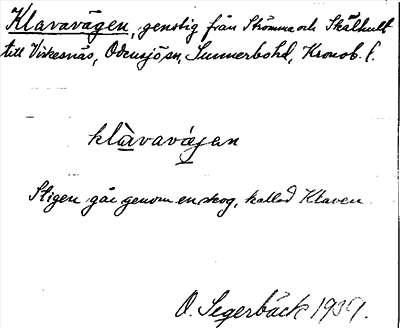 Klavavägen, genstig från Strömma och Skälhult
till Viskesnäs, Odensjö sn, Sunnerbo hd, Kronob. l.
klàvavägen
Stigen går genom en skog, kallad Klaven.
O. Segerbäck 1939.